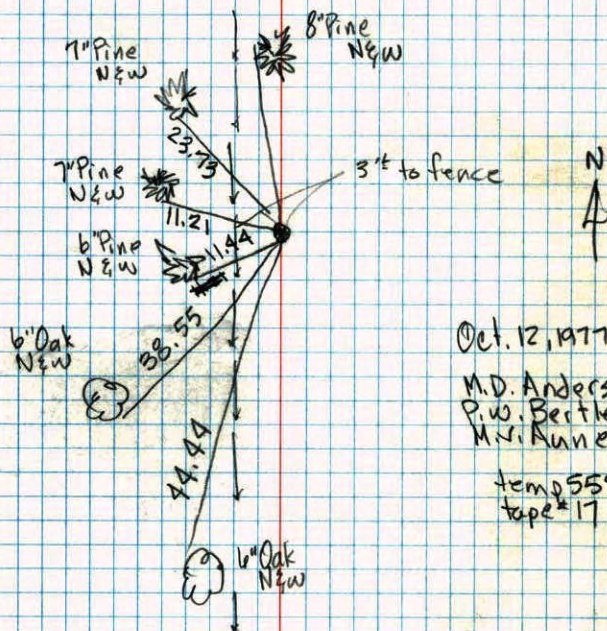 8"Pine
N&W
7"Pine
N&W
23.73
7"Pine
N&W
11.21
3'± to fence
N
6"Pine
N&W
11.44
6"Oak
N&W
38.55
Oct. 12, 1977
M.D. Anders
P.W. Bertle
M.N. Aune
44.44
temp 55°
tape #17
6"Oak
N&W